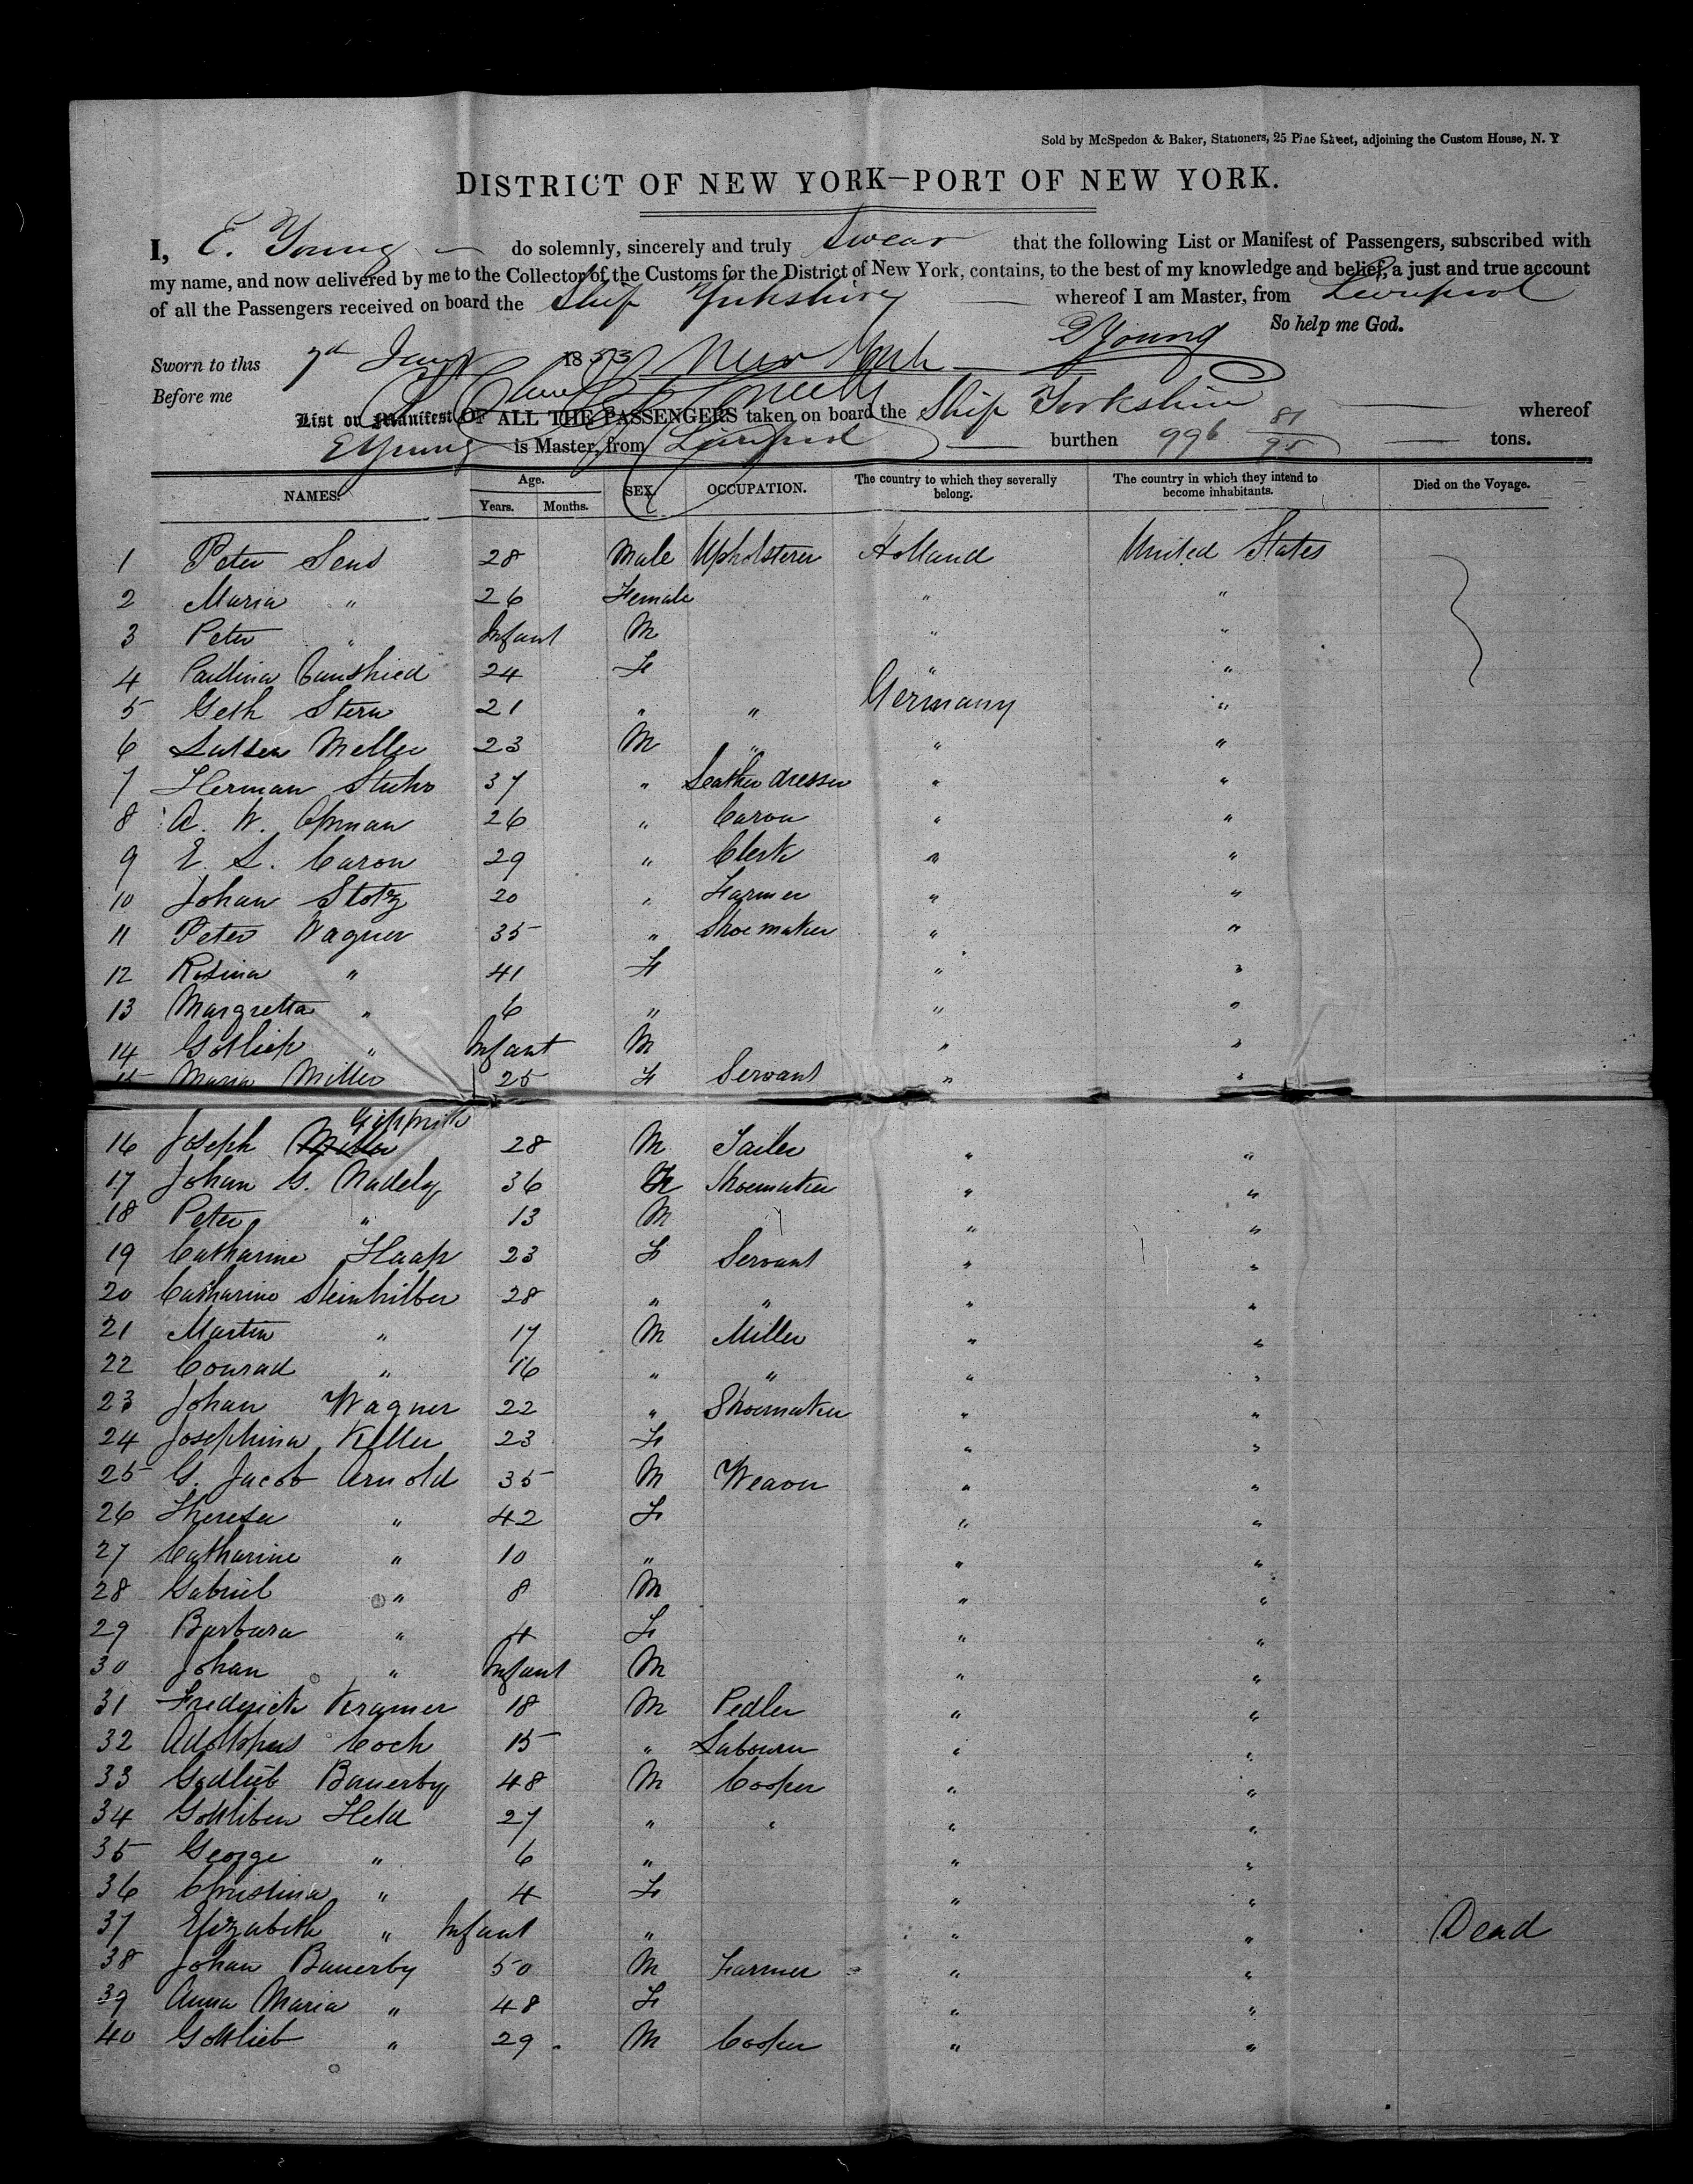 Sold by McSpedon & Baker, Stationers, 25 Pine Street, adjoining the Custom House, N. Y
DISTRICT OF NEW YORK—PORT OF NEW YORK.
I, E. Young do solemnly, sincerely and truly Swear that the following List or Manifest of Passengers, subscribed with
my name, and now delivered by me to the Collector of the Customs for the District of New York, contains, to the best of my knowledge and belief, a just and true account
of all the Passengers received on board the Ship Yorkshire whereof I am Master, from Liverpool
So help me God.
E Young
Sworn to this 7th Jany 1853 New York
Before me
List or Manifest OF ALL THE PASSENGERS taken on board the Ship Yorkshire whereof
E Young is Master, from Liverpool burthen 996 81/95 tons.
NAMES. Age. Years. Months. SEX. OCCUPATION. The country to which they severally belong. The country in which they intend to become inhabitants. Died on the Voyage.
1 Peter Sens 28 Male Upholsterer Holland United States
2 Maria " 26 Female " "
3 Peter " Infant M " "
4 Paulina 24 F " "
5 Geth Stern 21 " " Germany "
6 Meller 23 M " " "
7 Herman 37 " Leather dresser " "
8 A. W. Opman 26 " " "
9 E. L. Caron 29 " Clerk " "
10 Johan Stotz 20 " Farmer " "
11 Peter Wagner 35 " Shoemaker " "
12 Rosina " 41 F " "
13 Margretta " 6 " " "
14 Gotlieb " Infant M " "
15 Maria Miller 25 F Servant " "
16 Joseph 28 M Tailer " "
17 Johan G. Nadely 36 Shoemaker " "
18 Peter " 13 M " "
19 Catharine Haap 23 F Servant " "
20 Catharine Steinhilber 28 " " " "
21 Martin " 17 M Miller " "
22 Conrad " 16 " " " "
23 Johan Wagner 22 " Shoemaker " "
24 Josephina Keller 23 F " "
25 G. Jacob Arnold 35 M Weaver " "
26 Theresa " 42 F " "
27 Catharine " 10 " " "
28 Gabriel " 8 M " "
29 Barbara " 4 F " "
30 Johan " Infant M " "
31 Frederick Kramer 18 M Pedler " "
32 Adolphus Coch 15 " Labourer " "
33 Godlieb Bauerby 48 M Cooper " "
34 Gottliben Held 27 " " " "
35 George " 6 " " "
36 Christina " 4 F " "
37 Elizabeth " Infant " " " Dead
38 Johan Bauerby 50 M Farmer " "
39 Anna Maria " 48 F " "
40 Gottlieb " 29 M Cooper " "